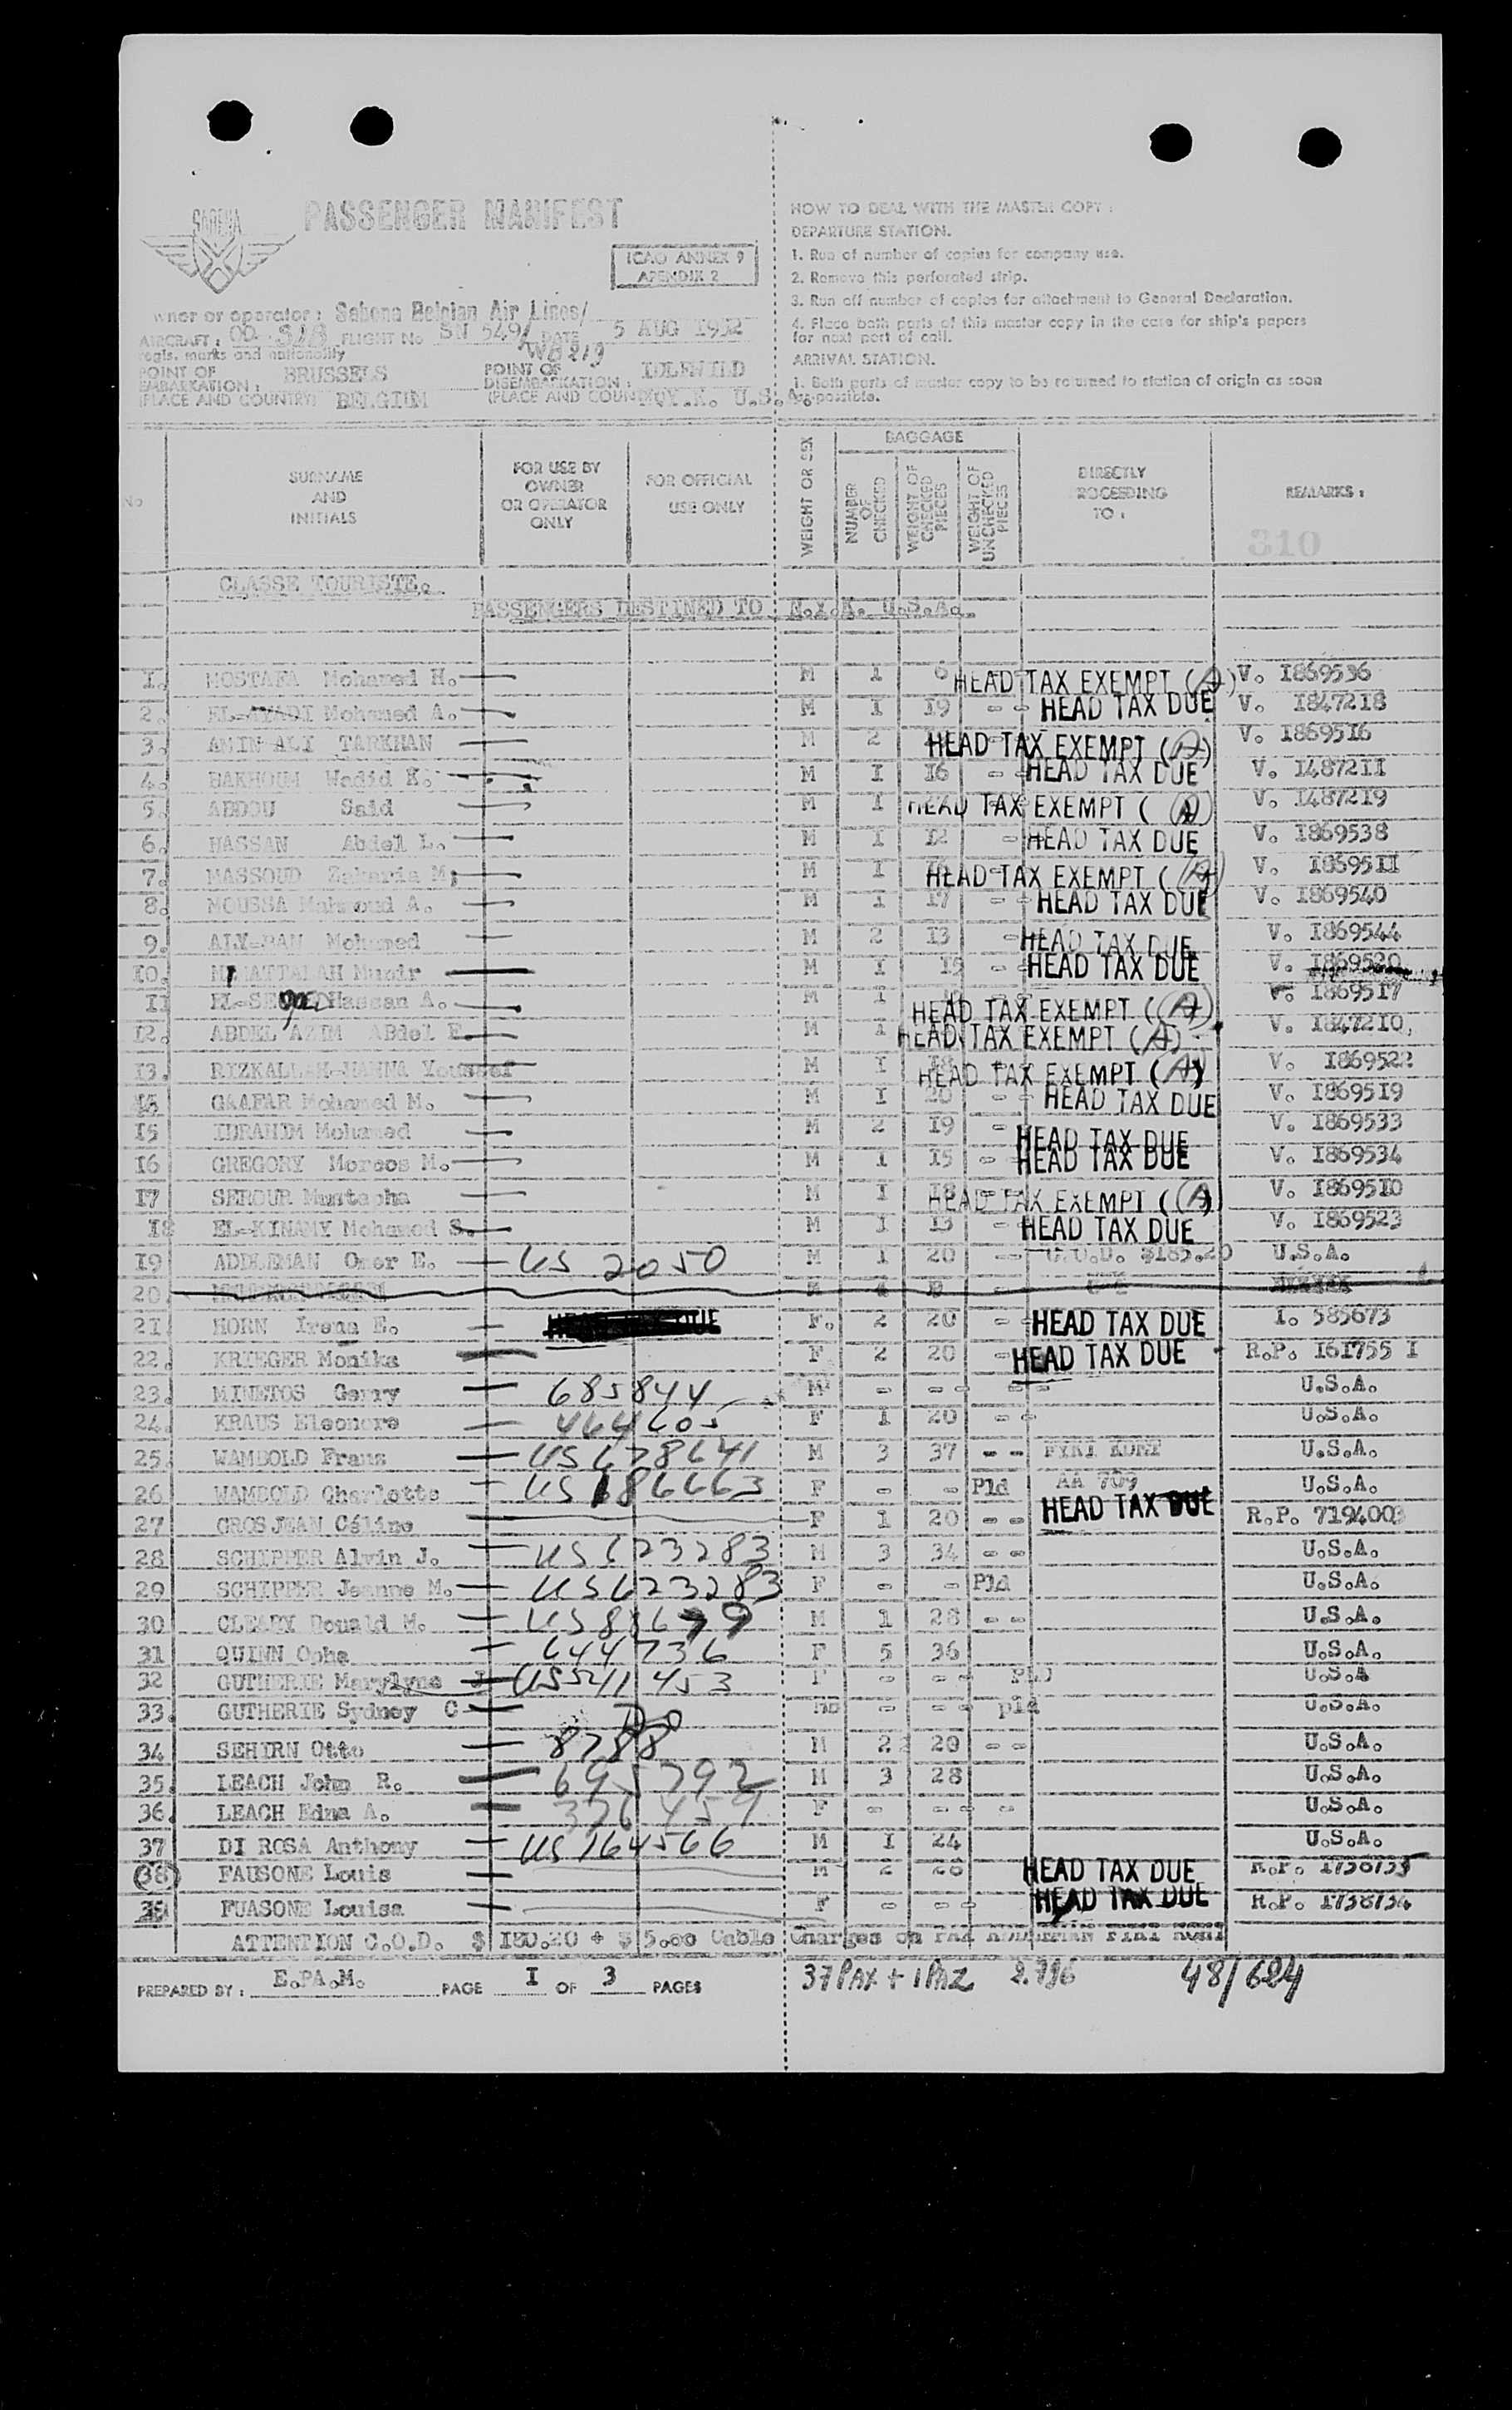 SABENA
PASSENGER MANIFEST
ICAO ANNEX 9
APENDIX 2
wner or operator : Sabena Belgian Air Lines/
AIRCRAFT : OO. FLIGHT No SN 549/ DATE 5 AUG 1952
regis. marks and nationality WB 219
POINT OF EMBARKATION : BRUSSELS POINT OF DISEMBARKATION : IDLEWILD
(PLACE AND COUNTRY) BELGIUM (PLACE AND COUN U.S.A.
HOW TO DEAL WITH THE MASTER COPY :
DEPARTURE STATION.
1. Run of number of copies for company use.
2. Remove this perforated strip.
3. Run off number of copies for attachment to General Declaration.
4. Place both parts of this master copy in the case for ship's papers
for next port of call.
ARRIVAL STATION.
1. Both parts of master copy to be returned to station of origin as soon
as possible.
No
SURNAME AND INITIALS
FOR USE BY OWNER OR OPERATOR ONLY
FOR OFFICIAL USE ONLY
WEIGHT OR SEX
BAGGAGE
NUMBER OF CHECKED
WEIGHT OF CHECKED PIECES
WEIGHT OF UNCHECKED PIECES
DIRECTLY PROCEEDING TO :
REMARKS :
310
CLASSE TOURISTE.
PASSENGERS DESTINED TO N.Y.K. U.S.A.
1. MOSTAFA Mohamed H. M 1 6 HEAD TAX EXEMPT (A) V. 1869536
2. EL-AYADI Mohamed A. M 1 19 - - HEAD TAX DUE V. 1847218
3. AMIN ALI TARKHAN M 2 HEAD TAX EXEMPT (A) V. 1869516
4. BAKHOUM Wadid K. M 1 16 - - HEAD TAX DUE V. 1487211
5. ABDOU Said M 1 HEAD TAX EXEMPT (A) V. 1487219
6. HASSAN Abdel L. M 1 12 - HEAD TAX DUE V. 1869538
7. MASSOUD Zakaria M; M 1 16 HEAD TAX EXEMPT (A) V. 1869511
8. MOUSSA Mahmoud A. M 1 17 - - HEAD TAX DUE V. 1869540
9. Mohamed M 2 13 - HEAD TAX DUE V. 1869544
10. Munir M 1 15 - - HEAD TAX DUE V. 1869520
11 Hassan A. M 1 HEAD TAX EXEMPT (A) V. 1869517
12. ABDEL AZIM ABdel E. M 1 HEAD TAX EXEMPT (A) V. 1847210.
13. RIZKALLAH-HANNA Youssef M 1 18 HEAD TAX EXEMPT (A) V. 1869522
GAAFAR Mohamed M. M 1 20 - - HEAD TAX DUE V. 1869519
15 IBRAHIM Mohamed M 2 19 - HEAD TAX DUE V. 1869533
16 GREGORY Morcos M. M 1 15 - HEAD TAX DUE V. 1869534
17 SEROUR Mustapha M 1 18 HEAD TAX EXEMPT (A) V. 1869510
18 EL-KINAMY Mohamed S. M 1 13 - HEAD TAX DUE V. 1869523
19 ADDLEMAN Omer E. US 2050 M 1 20 - - C.O.D. $185.20 U.S.A.
20.
21. HORN Irena E. F. 2 20 - HEAD TAX DUE I. 585673
22. KRIEGER Monika F 2 20 - HEAD TAX DUE R.P. 161755 I
23. MINETOS Gerry 685844 M - - - - - U.S.A.
24. KRAUS Eleonore 464605 F 1 20 - - U.S.A.
25. WAMBOLD Frans US 678641 M 3 37 - - U.S.A.
26 WAMBOLD Charlotte US 186663 F - - Pld AA 709 U.S.A.
27 GROSJEAN Céline F 1 20 - - HEAD TAX DUE R.P. 7194003
28. SCHIPPER Alvin J. US 623283 M 3 34 - - U.S.A.
29 SCHIPPER Jeanne M. US 623283 F - - Pld U.S.A.
30 CLEARY Donald M. US 88679 M 1 28 - - U.S.A.
31 QUINN Opha 644736 F 5 36 U.S.A.
32 GUTHERIE Marylyne J US 541453 F - - - PLD U.S.A
33. GUTHERIE Sydney C - - - pld U.S.A.
34 SEHIRN Otto 8788 M 2 20 - - U.S.A.
35. LEACH John R. 695792 M 3 28 U.S.A.
36. LEACH Edna A. 326459 F - - - - U.S.A.
37 DI ROSA Anthony US 164566 M 1 24 U.S.A.
38 FAUSONE Louis M 2 28 HEAD TAX DUE R.P. 1738733
39 FUASONE Louisa F - - - HEAD TAX DUE R.P. 1738734
ATTENTION C.O.D. $ 180.20 + $ 5.00 Cable Charges on PAX
PREPARED BY : E.PA.M. PAGE I OF 3 PAGES 37 PAX + 1 2.796 48/624